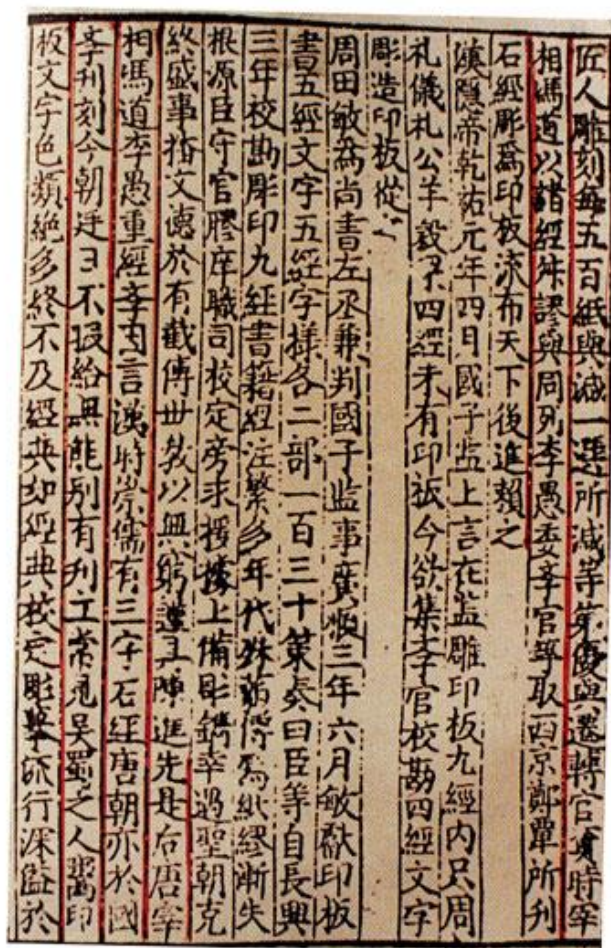 匠人雕刻每五百紙與減一選所減等第優與遷轉官資時宰
相馮道以諸經舛謬與同列李愚委學官等取西京鄭覃所刊
石經雕爲印板流布天下後進賴之
漢隱帝乾祐元年四月國子監上言在監雕印板九經內只周
礼儀礼公羊穀梁四經未有印板今欲集學官校勘四經文字
彫造印板從之
周田敏爲尚書左丞兼判國子監事廣順三年六月敏獻印板
書五經文字五經字様各二部一百三十策奏曰臣等自長興
三年校勘彫印九經書籍經注繁多年代殊邈傳寫紕繆漸失
根源臣守官膠庠職司校定旁求援據上備彫鐫幸遇聖朝克
終盛事播文德於有截傳世敎以無窮謹具陳進先是后唐宰
相馮道李愚重經學因言漢時崇儒有三字石經唐朝亦於國
學刊刻今朝廷日不暇給無能別有刊立常見吳蜀之人鬻印
板文字色類絕多終不及經典如經典校定彫摹流行深益於